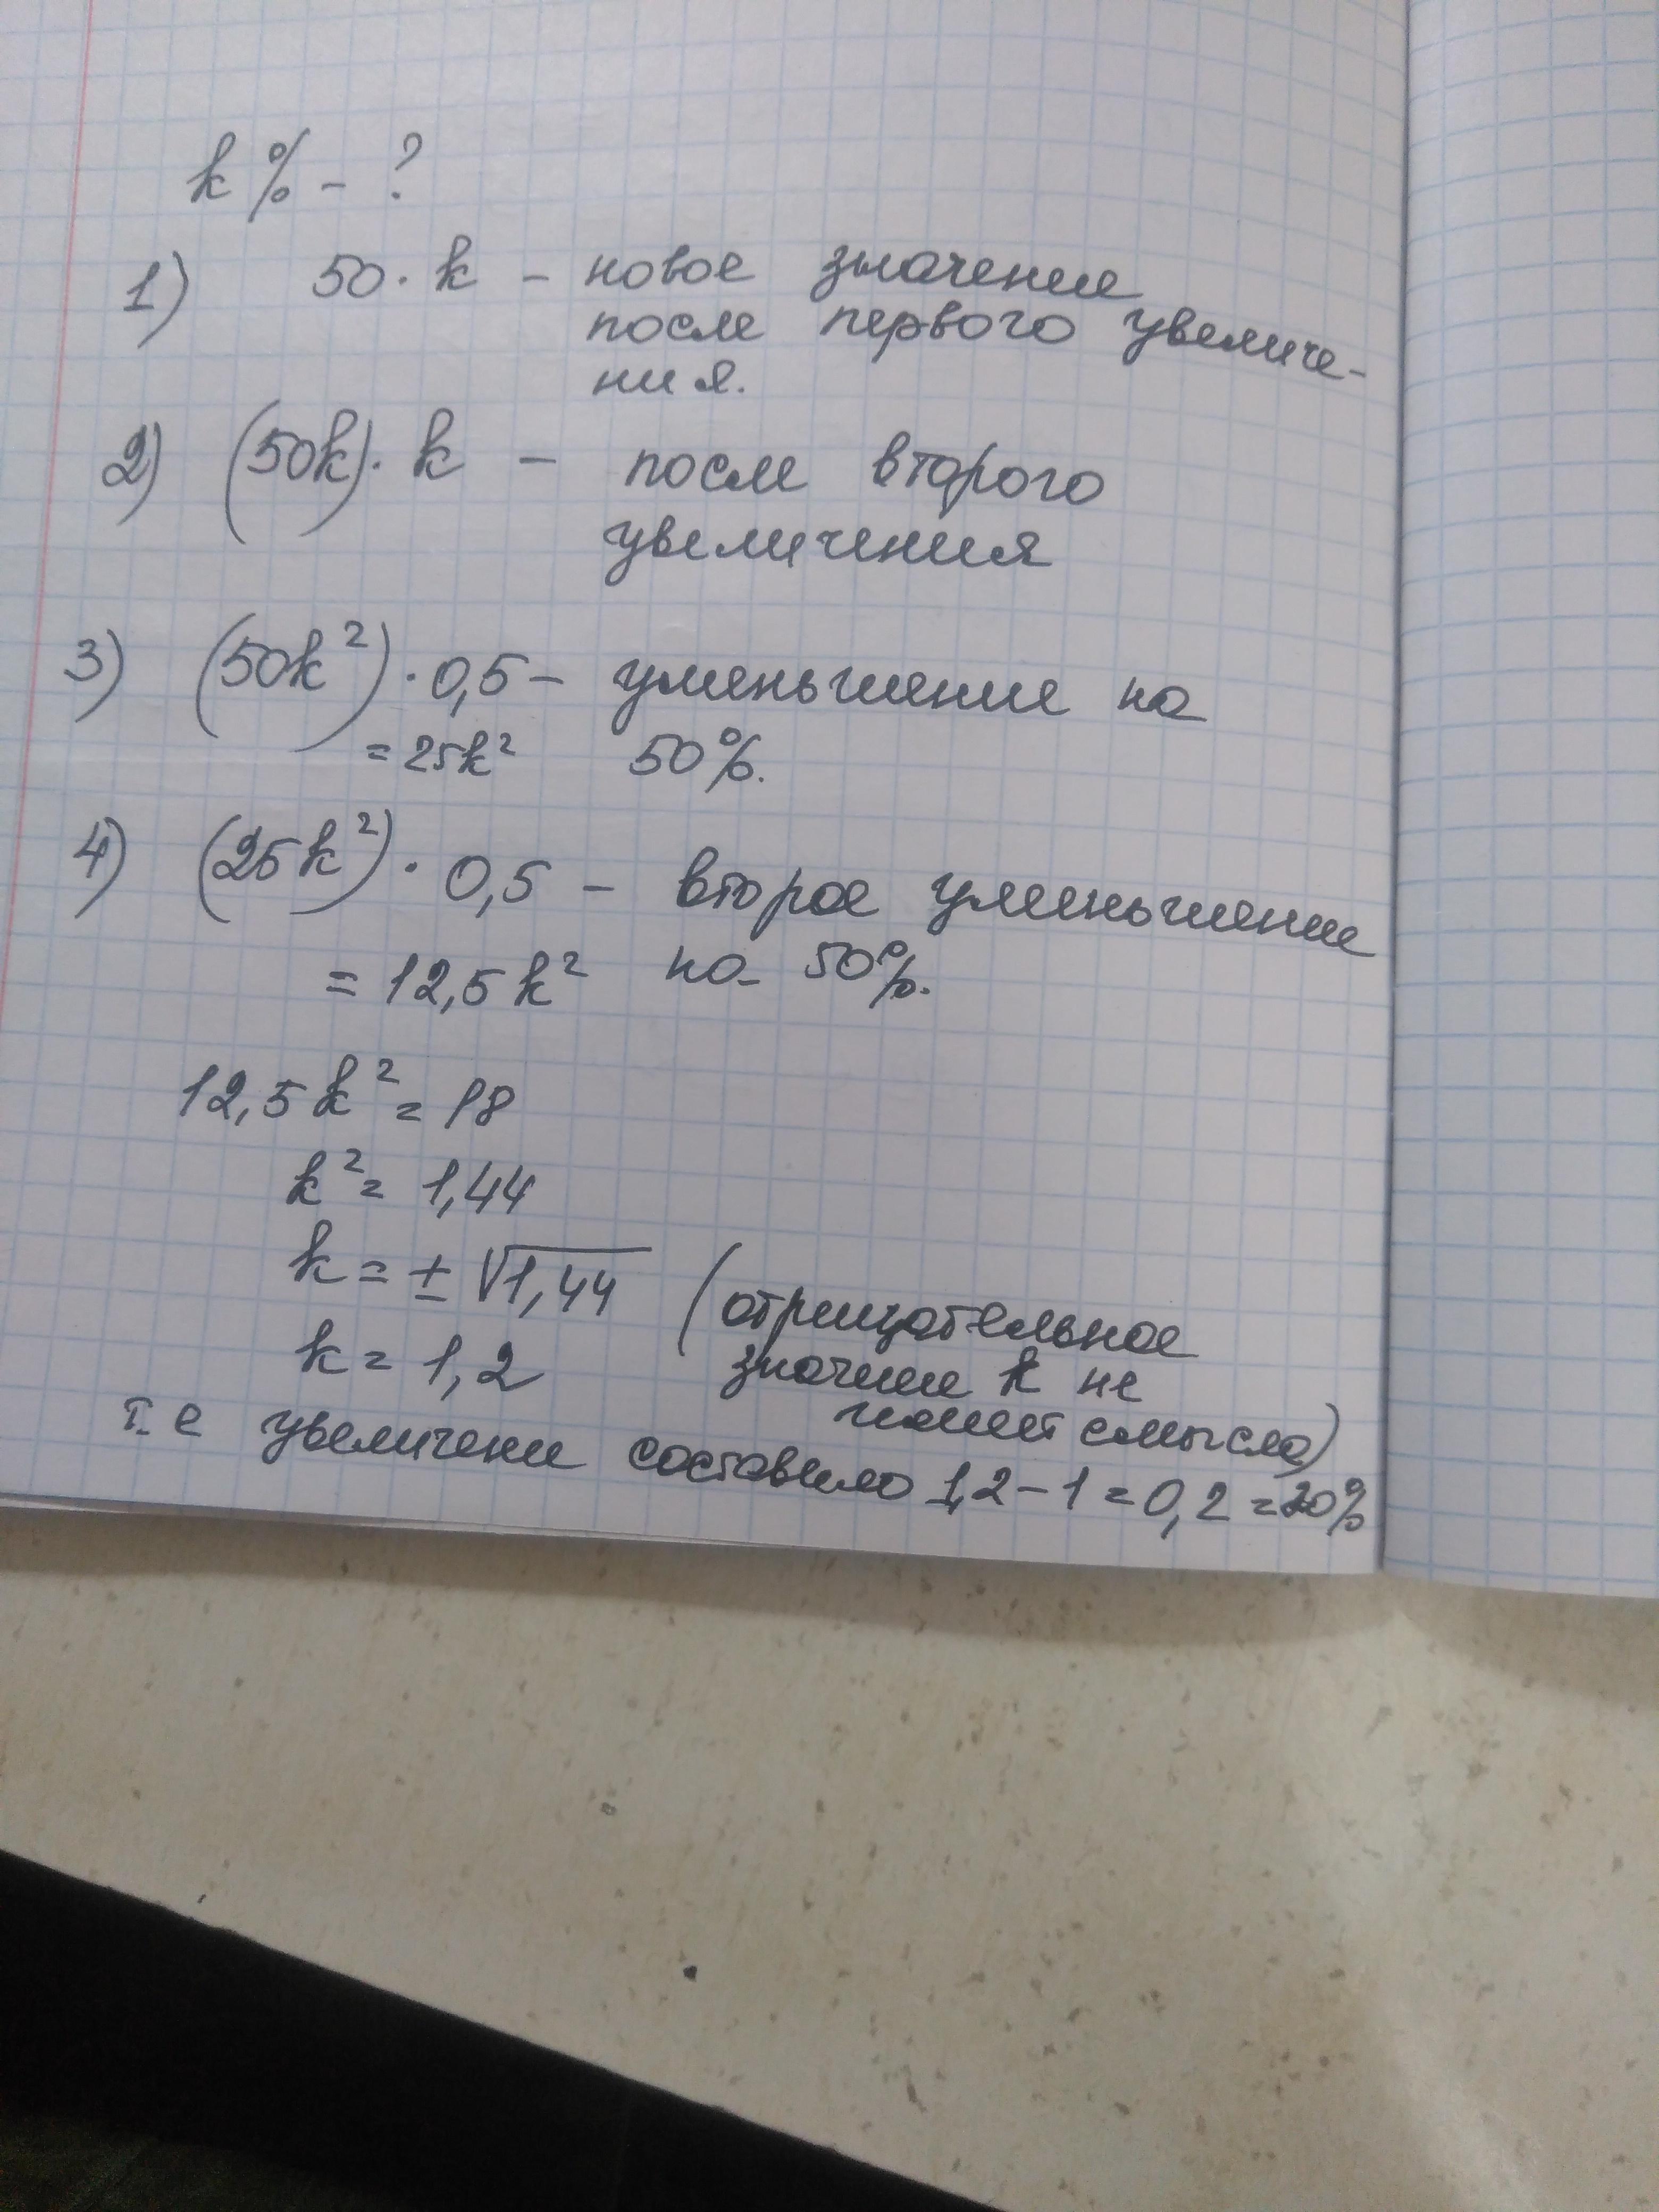 k % - ?
1) 50 · k - новое значение
после первого увеличе-
ния.
2) (50k) · k - после второго
увеличения
3) (50k²) · 0,5 - уменьшение на
= 25k² 50%.
4) (25k²) · 0,5 - второе уменьшение
= 12,5k² на 50%.
12,5k² = 18
k² = 1,44
k = ± √1,44 (отрицательное
k = 1,2 значение k не
имеет смысла)
т.е увеличение составило 1,2 - 1 = 0,2 = 20%